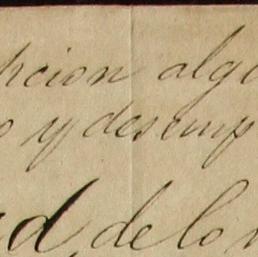 pcion algu
o y desemp
ad, de lo